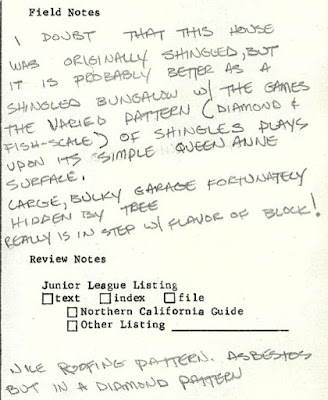 Field Notes
I DOUBT THAT THIS HOUSE
WAS ORIGINALLY SHINGLED, BUT
IT IS PROBABLY BETTER AS A
SHINGLED BUNGALOW W/ THE GAMES
THE VARIED PATTERN (DIAMOND &
FISH-SCALE) OF SHINGLES PLAYS
UPON ITS SIMPLE QUEEN ANNE
SURFACE.
LARGE, BULKY GARAGE FORTUNATELY
HIDDEN BY TREE
REALLY IS IN STEP W/ FLAVOR OF BLOCK!
Review Notes
Junior League Listing
☐ text ☐ index ☐ file
☐ Northern California Guide
☐ Other Listing
NICE ROOFING PATTERN. ASBESTOS
BUT IN A DIAMOND PATTERN